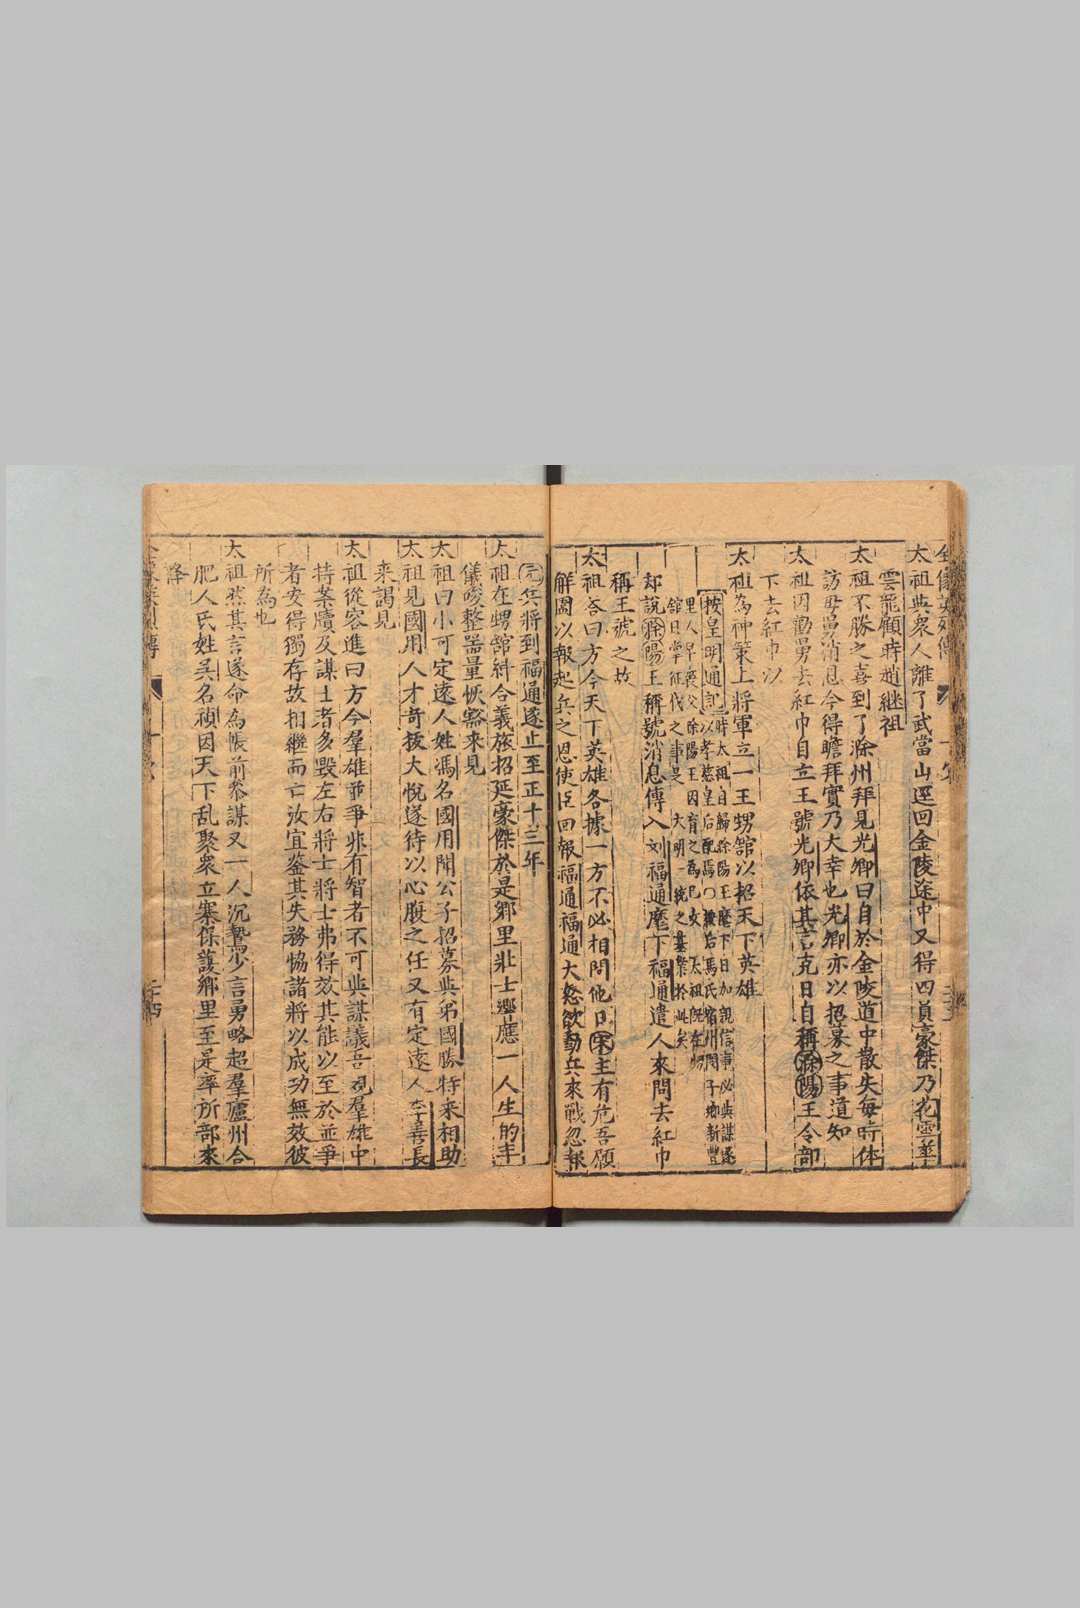 太祖與衆人離了武當山逕回金陵途中又得四員豪傑乃花雲華
雲龍顧時趙継祖
太祖不勝之喜到了滁州拜見光卿曰自於金陵道中散失每時体
訪母舅消息今得瞻拜實乃大幸也光卿亦以招募之事道知
太祖因勸舅去紅巾自立王號光卿依其言克日自稱滁陽王令部
下去紅巾以
太祖為神策上將軍立一王甥舘以招天下英雄
按皇明通記時太祖自歸滁陽王麾下日加親信事必與謀遂
以孝慈皇后配焉○按后馬氏宿州閔子鄉新豐
里人早喪父滁陽王因育之為己女太祖既在甥
舘日掌征伐之事是大明一統之基肇於此矣
却說滁陽王稱號消息傳入刘福通麾下福通遣人來問去紅巾
稱王號之故
太祖答曰方今天下英雄各據一方不必相問他日宋主有危吾願
解圍以報起兵之恩使臣回報福通福通大怒欲動兵來戰忽報
元兵將到福通遂止至正十三年
太祖在甥舘糾合義旅招延豪傑於是鄉里壯士響應一人生的丰
儀峻整器量恢豁來見
太祖曰小可定遠人姓馮名國用聞公子招募與弟國勝特来相助
太祖見國用人才奇拔大悅遂待以心腹之任又有定遠人李善長
来謁見
太祖從容進曰方今羣雄並爭非有智者不可與謀議吾視羣雄中
持案牘及謀士者多毀左右將士將士弗得效其能以至於並爭
者安得獨存故相繼而亡汝宜鉴其失務恊諸將以成功無效彼
所為也
太祖然其言遂命為帳前叅謀又一人沉鷙少言勇略超羣廬州合
肥人氏姓吴名禎因天下乱聚衆立寨保護鄉里至是率所部來
降
二十四